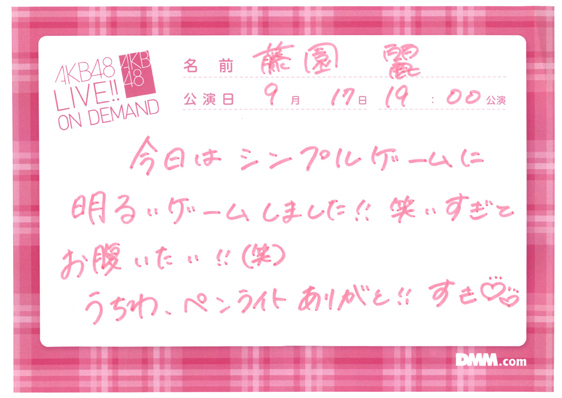 AKB48
LIVE!!
ON DEMAND
AKB
48
名前 藤園 麗
公演日 9月 17日 19:00公演
今日は シンプルゲームに
明るいゲームしました!! 笑いすぎて
お腹いたい!!(笑)
うちわ、ペンライト ありがと!! すき♡♡
DMM.com